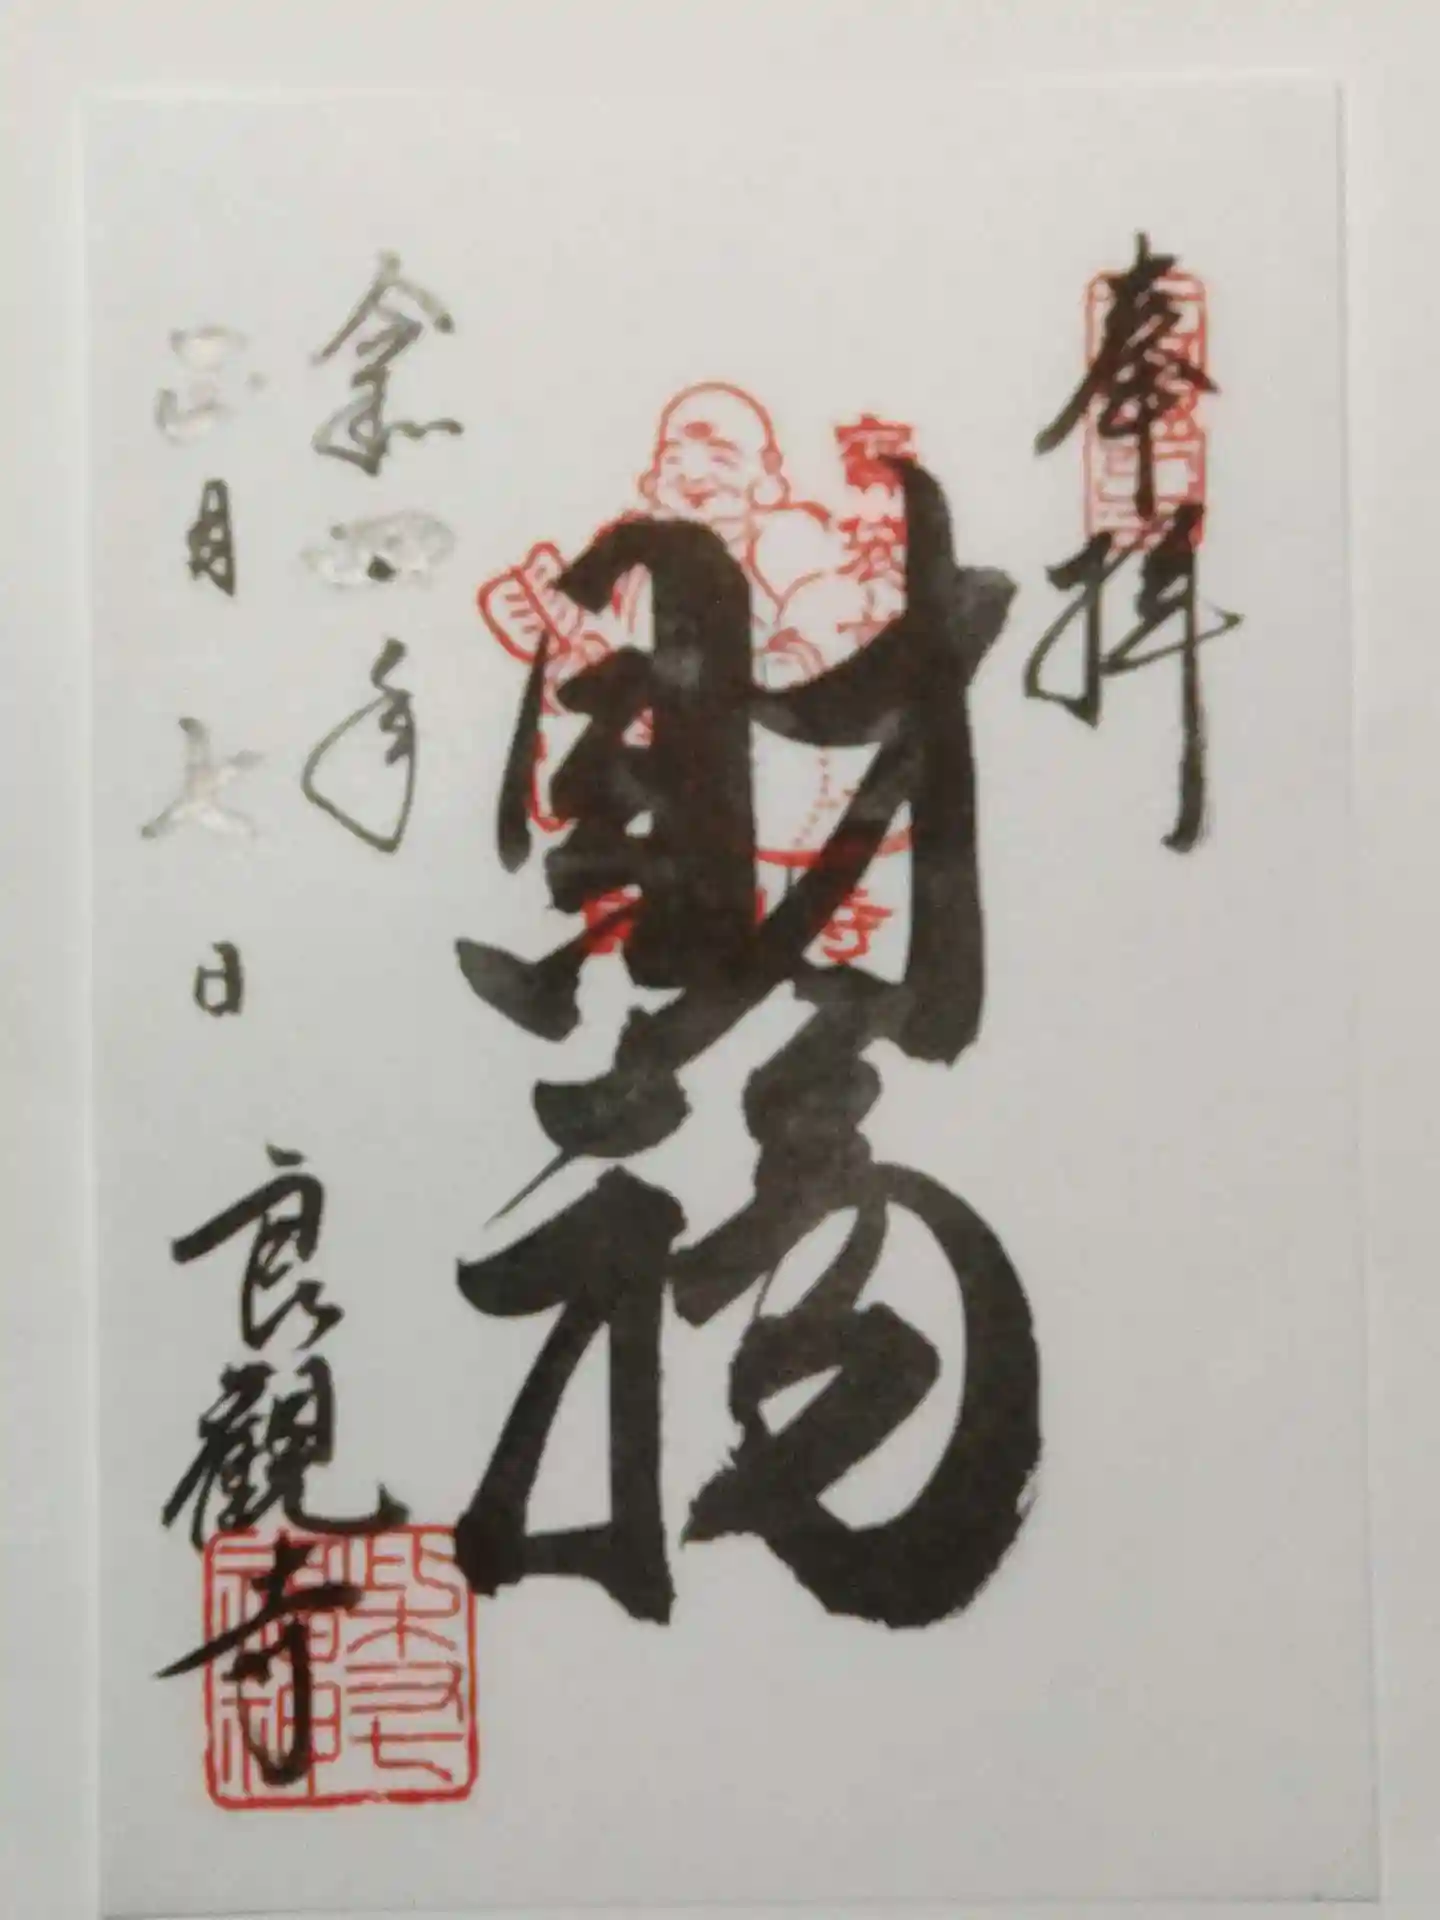 奉拝
財福
令和四年
正月七日
良觀寺